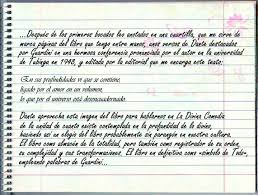 ...Después de los primeros bocados leo anotados en una cuartilla, que me sirve de
marca páginas del libro que tengo entre manos, esos versos de Dante destacados
por Guardini en una hermosa conferencia pronunciada por el autor en la universidad
de Tubinga en 1948, y editada por la editorial que me encarga este texto:
En sus profundidades vi que se contiene,
ligado por el amor en un volumen,
lo que por el universo está desencuadernado.
Dante aprovecha esta imagen del libro para hablarnos en La Divina Comedia
de la unidad de cuanto existe contemplada en la profundidad de lo divino,
haciendo así un elogio del libro probablemente sin parangón en nuestra cultura.
El libro como almacén de la totalidad, pero también como registrador de su orden,
su complejidad y sus transformaciones. El libro en definitiva como «símbolo de Todo»,
empleando palabras de Guardini...